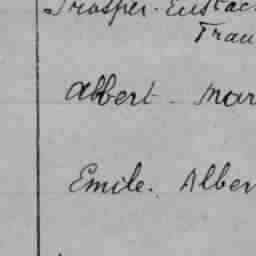 Prosper. Eustac
Fran
Albert - Mar
Emile. Alber